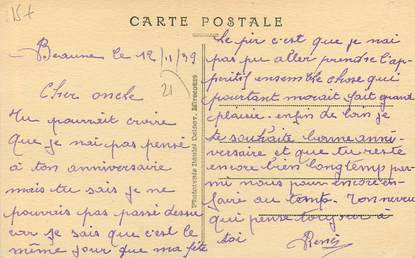 15 +
CARTE POSTALE
Beaune le 12/11/39
21
Cher oncle
Tu pourrait croire
que je n'ai pas pensé
à ton anniversaire
mais tu sais je ne
pouvais pas passé dessu
car je sais que c'est le
même jour que ma fête
Photographie Daniel Delboy, Mirecourt
Le pir c'est que je n'ai
pas pu aller prendre l'ap-
péritif ensemble chose qui
pourtant m'orait fait grand
plaisie. enfin de loin je
te souhaite bonne anni-
versaire et que tu reste
encore bien longtemp par-
mi nous pour encore en
faire au tamp. Ton neveu
qui pense toujour a
toi René